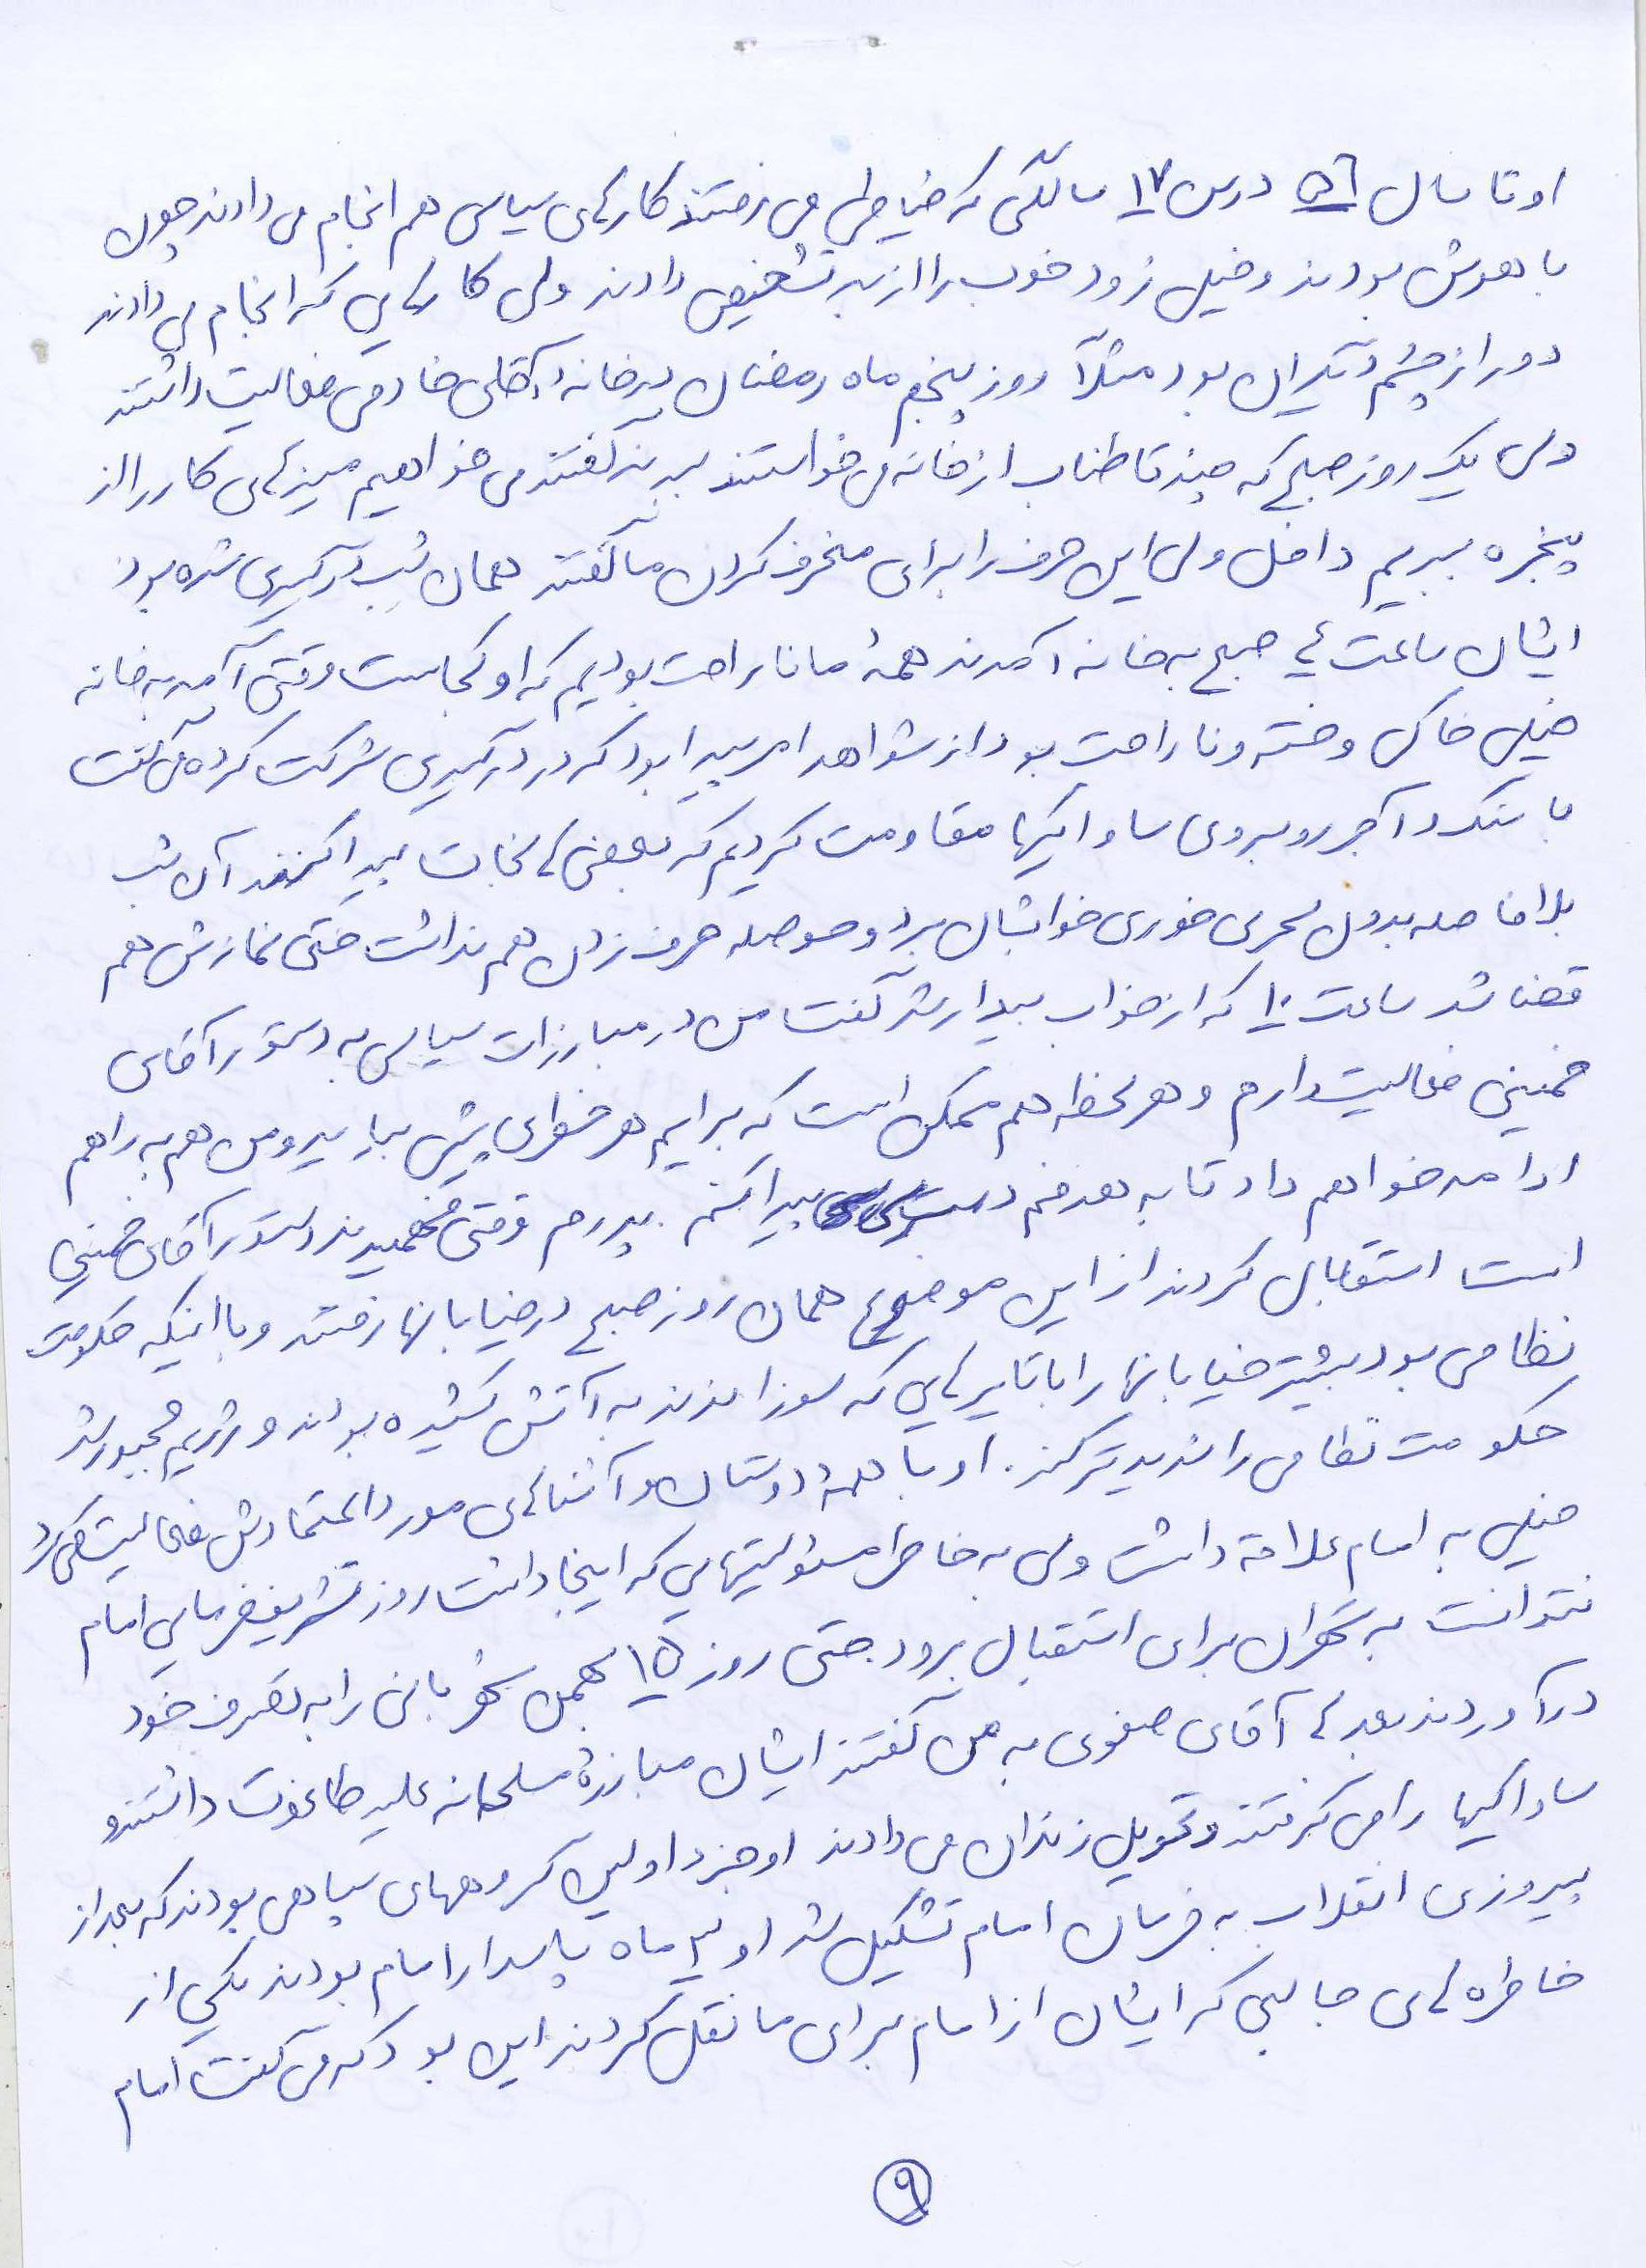 او تا سال ۵۶ در سن ۱۷ سالگی که خیاطی می رفتند کارهای سیاسی هم انجام می دادند چون
با هوش بودند و خیلی زود خوب را از بد تشخیص دادند ولی کارهایی که انجام می دادند
دور از چشم دیگران بود مثلاً روز پنجم ماه رمضان در خانه آقای خادمی فعالیت داشتند
ولی یک روز صبح که چند تا طناب از خانه می خواستند ببرند گفتند می خواهیم میزهای کار را از
پنجره ببریم داخل ولی این حرف را برای منحرف کردن ما گفتند همان شب درگیری شده بود
ایشان ساعت ۴ صبح به خانه آمدند همهٔ ما ناراحت بودیم که او کجاست وقتی آمد به خانه
خیلی خاکی و خسته و ناراحت بود از شواهد امر پیدا بود که در درگیری شرکت کرده می گفت
با سنگ و آجر روبروی ساواکیها مقاومت کردیم که بعضی ها نجات پیدا کنند آن شب
بلافاصله بدون سحری خوری خوابشان برد و حوصله حرف زدن هم نداشت حتی نمازش هم
قضا شد ساعت ۱۰ که از خواب بیدار شد گفت من در مبارزات سیاسی به دستور آقای
خمینی فعالیت دارم و هر لحظه هم ممکن است که برایم هر خطری پیش بیاید و من هم به راهم
ادامه خواهم داد تا به هدفم دست پیدا کنم . پدرم وقتی فهمیدند دستور آقای خمینی
است استقبال کردند از این موضوع همان روز صبح در خیابانها رفتند و با اینکه حکومت
نظامی بود بیشتر خیابانها را با تایرهایی که سوزاندند به آتش کشیده بودند و رژیم مجبور شد
حکومت نظامی را شدیدتر کند . او با همهٔ دوستان و آشناهای مورد اعتمادش فعالیت می کرد
خیلی به امام علاقه داشت ولی به خاطر مسئولیتهایی که اینجا داشت روز تشریف فرمایی امام
نتوانست به تهران برای استقبال برود حتی روز ۱۵ بهمن شهربانی را به تصرف خود
درآوردند بعدها آقای صفوی به من گفتند ایشان مبارزهٔ مسلحانه علیه طاغوت داشتند و
ساواکیها را می گرفتند و تحویل زندان می دادند او جزء اولین گروههای سپاهی بودند که بعد از
پیروزی انقلاب به فرمان امام تشکیل شد او ۳ ماه پاسدار امام بودند یکی از
خاطره های جالبی که ایشان از امام برای ما نقل کردند این بود که می گفت امام
۹